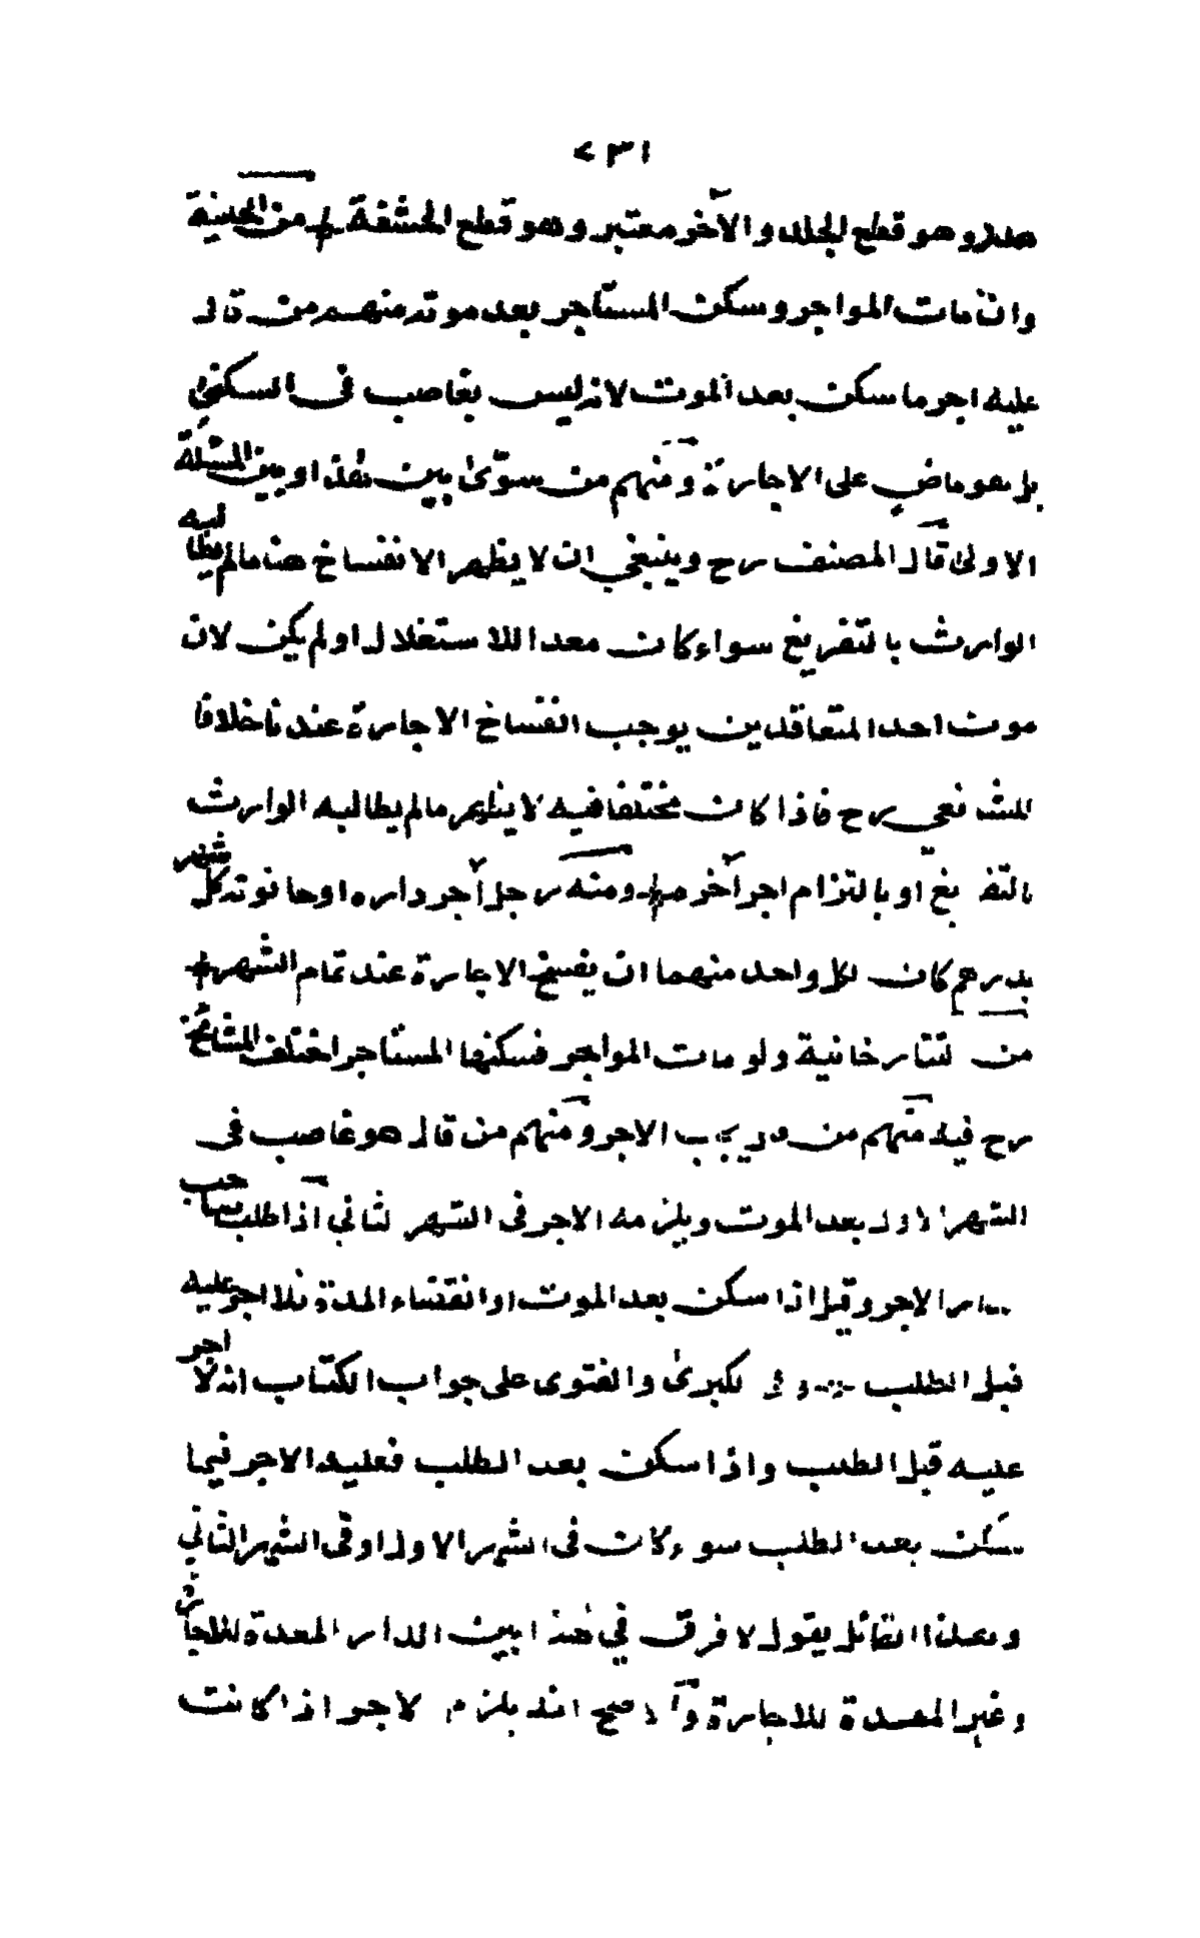 ٧٣١
هدر وهو قطع الجلد والآخر معتبر وهو قطع الحشفة من
وان مات المواجر وسكن المستاجر بعد موته منهم من قال
عليه اجر ما سكن بعد الموت لانه ليس بغاصب فى السكنى
بل هو ماض على الاجارة ومنهم من سوّى بين هذا وبين المسئلة
الاولى قال المصنف رح وينبغي ان لا يظهر الانفساخ هنا مالم يطالبه
الوارث بالتفريغ سواء كان معدا للاستغلال او لم يكن لان
موت احد المتعاقدين يوجب انفساخ الاجارة عندنا خلافا
للشافعي رح فاذا كان مختلفا فيه لا يظهر مالم يطالبه الوارث
بالتفريغ او بالتزام اجر آخر ومنه رجل آجر داره او حانوته كل شهر
بدرهم كان لكل واحد منهما ان يفسخ الاجارة عند تمام الشهر
من التتارخانية ولو مات المواجر فسكنها المستاجر اختلف المشائخ
رح فيه منهم من قال يجب الاجر ومنهم من قال هو غاصب فى
الشهر الاول بعد الموت ويلزمه الاجر فى الشهر الثاني اذا طلب صاحب
الدار الاجر وقيل اذا سكن بعد الموت او انقضاء المدة فلا اجر عليه
قبل الطلب وفى الكبرى والفتوى على جواب الكتاب انه لا اجر
عليه قبل الطلب واذا سكن بعد الطلب فعليه الاجر فيما
سكن بعد الطلب سواء كان فى الشهر الاول او فى الشهر الثاني
وهذا القائل يقول لا فرق في هذا بين الدار المعدة للاجارة
وغير المعدة للاجارة والاصح انه يلزم الاجر اذا كانت